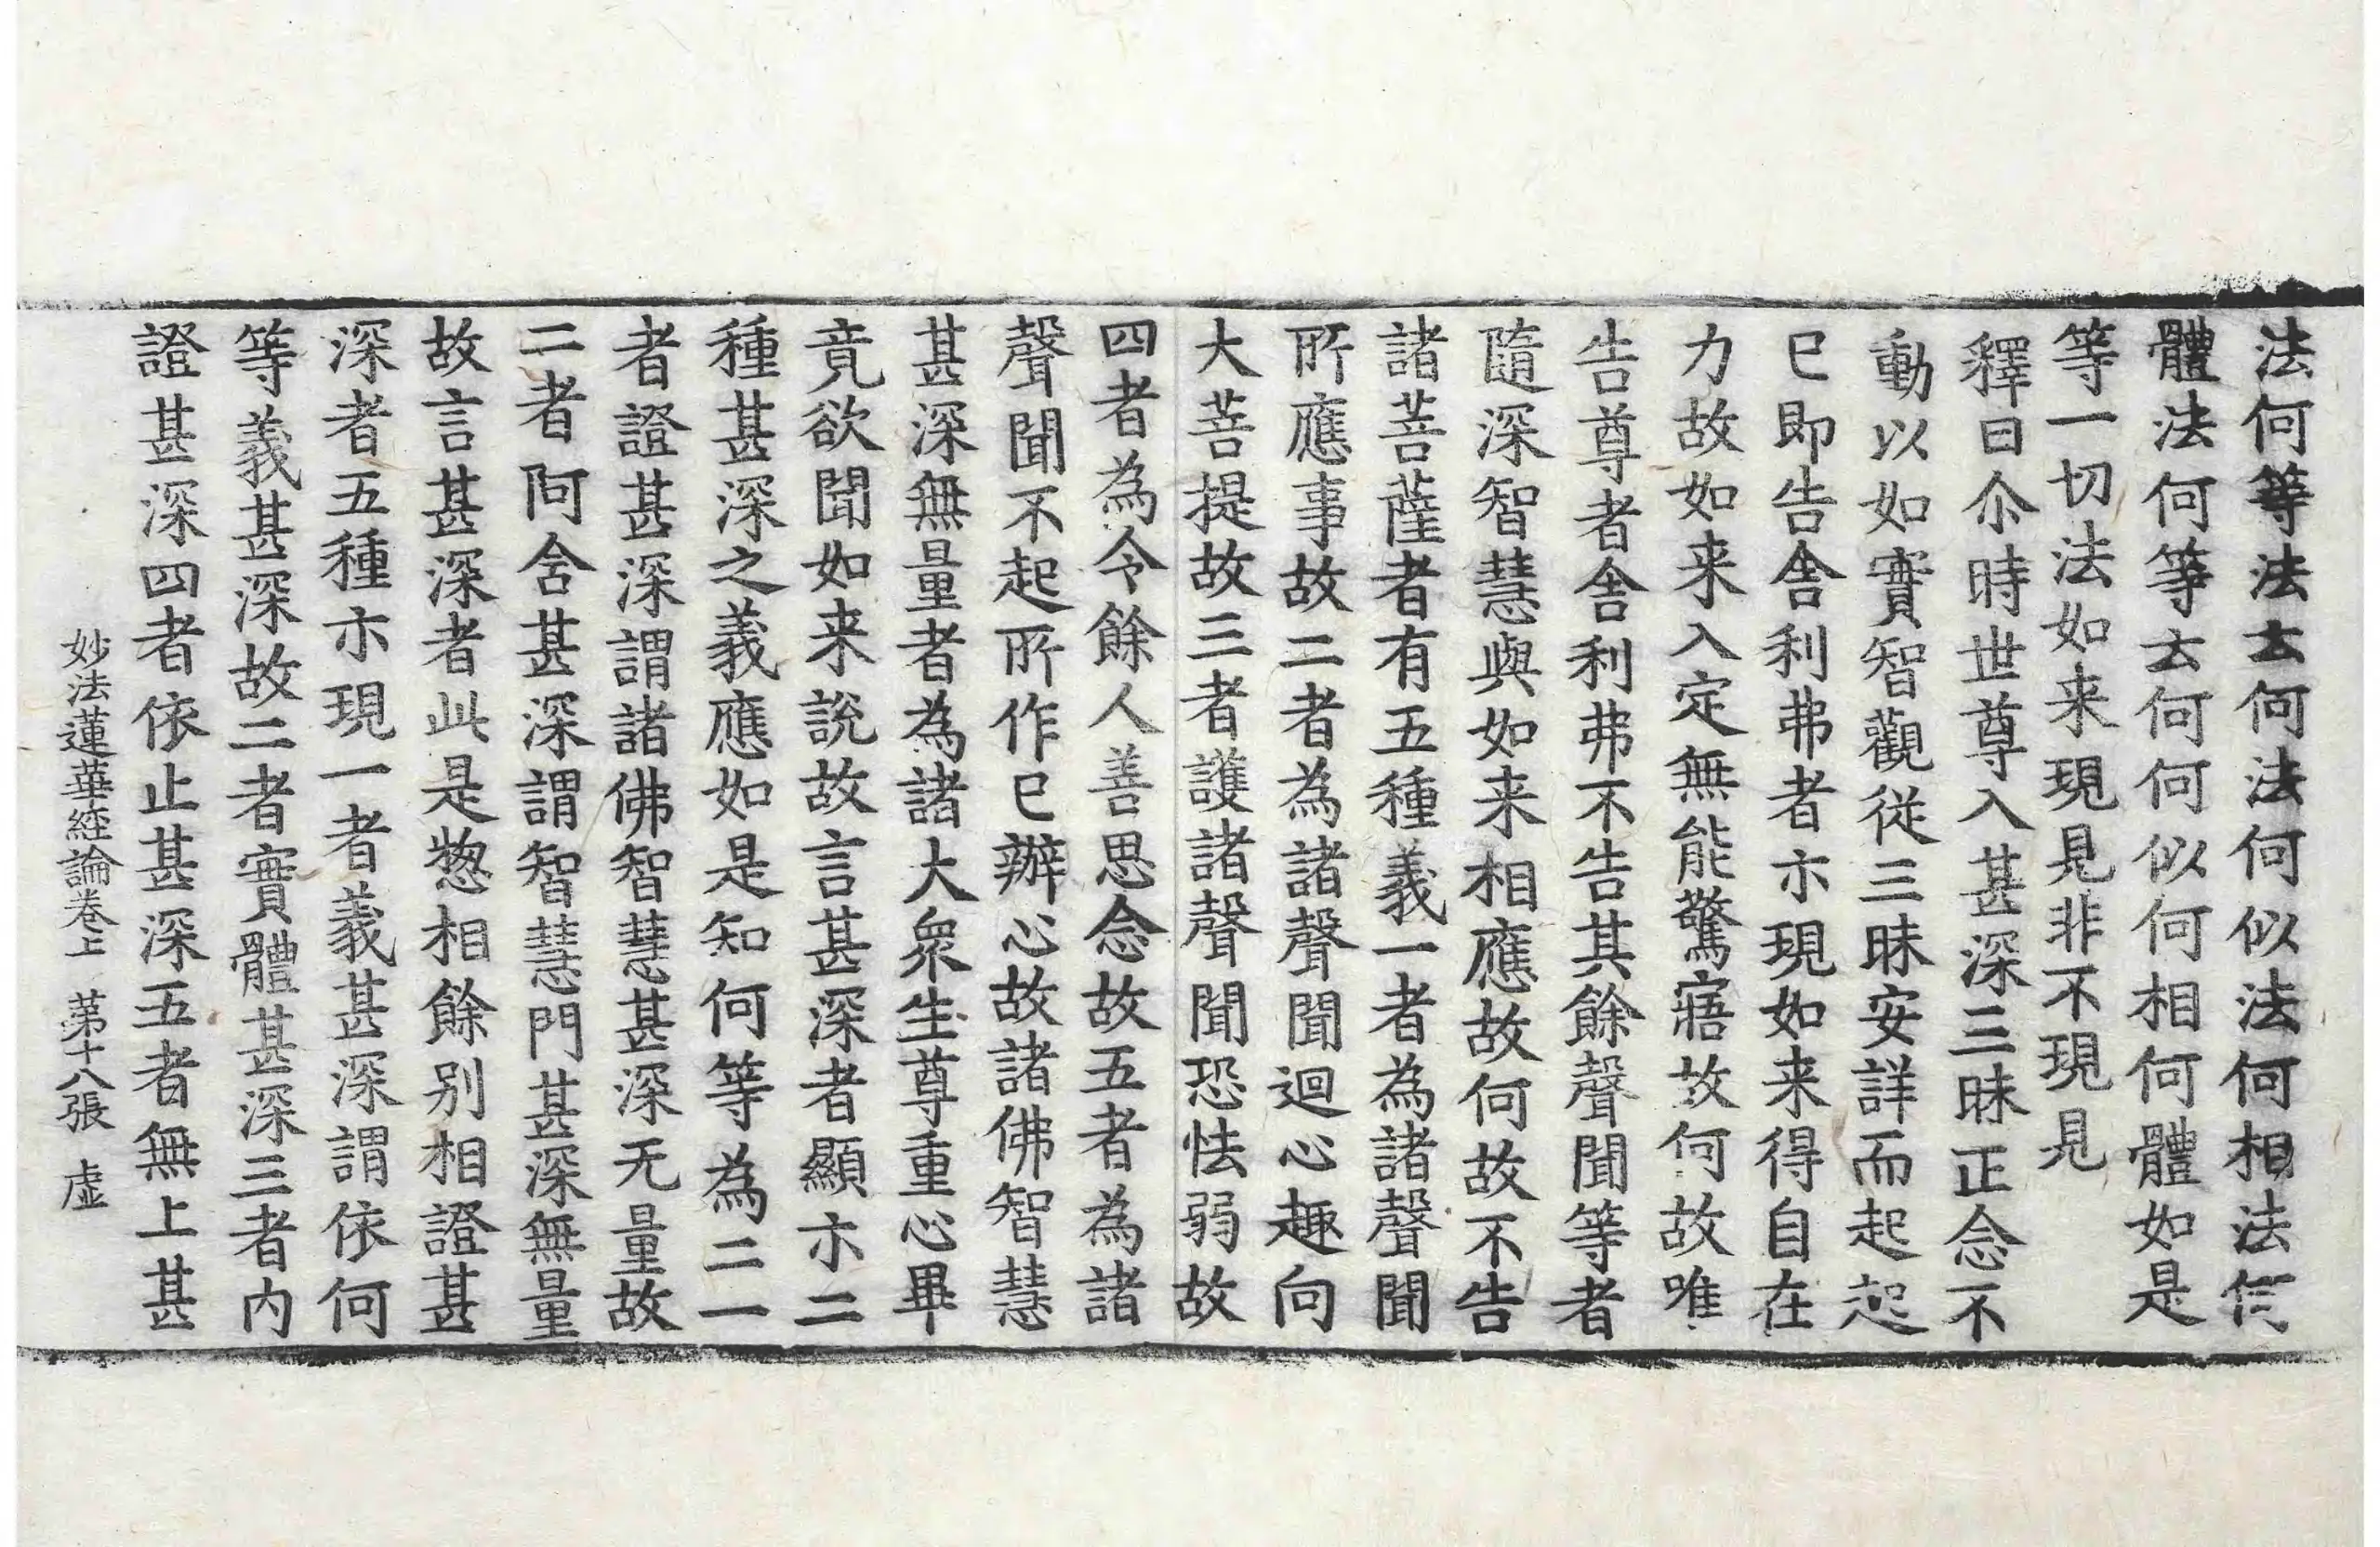 法何等法云何法何似法何相法何
體法何等云何何似何相何體如是
等一切法如来現見非不現見
釋曰尒時世尊入甚深三昧正念不
動以如實智觀從三昧安詳而起起
已即告舍利弗者示現如来得自在
力故如来入定無能驚寤故何故唯
告尊者舍利弗不告其餘聲聞等者
隨深智慧與如来相應故何故不告
諸菩薩者有五種義一者為諸聲聞
所應事故二者為諸聲聞迴心趣向
大菩提故三者護諸聲聞恐怯弱故
四者為令餘人善思念故五者為諸
聲聞不起所作已辦心故諸佛智慧
甚深無量者為諸大衆生尊重心畢
竟欲聞如来說故言甚深者顯示二
種甚深之義應如是知何等為二一
者證甚深謂諸佛智慧甚深无量故
二者阿含甚深謂智慧門甚深無量
故言甚深者此是揔相餘别相證甚
深者五種示現一者義甚深謂依何
等義甚深故二者實體甚深三者内
證甚深四者依止甚深五者無上甚
妙法蓮華経論卷上　苐十八張　虚